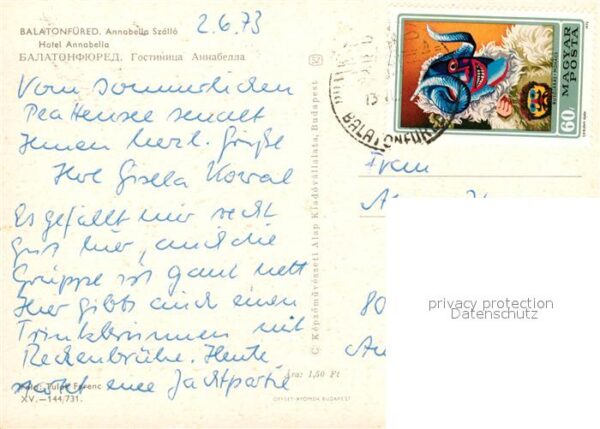 2.6.73
BALATONFÜRED. Annabella Szálló
Hotel Annabella
БАЛАТОНФЮРЕД. Гостиница Аннабелла
Vom sommerlichen
Plattensee sendet
Ihnen herzl. Grüße
Ihre Gisela Kowal
Es gefällt mir recht
gut hier, auch die
Gruppe ist ganz nett
Hier gibts auch einen
Trinkbrunnen mit
Heute
startet eine Jachtpartie
Ferenc
XV.—144/731.
Ára: 1,50 Ft
OFFSET-NYOMDA BUDAPEST
C Képzőművészeti Alap Kiadóvállalata, Budapest
MAGYAR POSTA
60f
BALATONFÜRED
Frau
80
privacy protection
Datenschutz